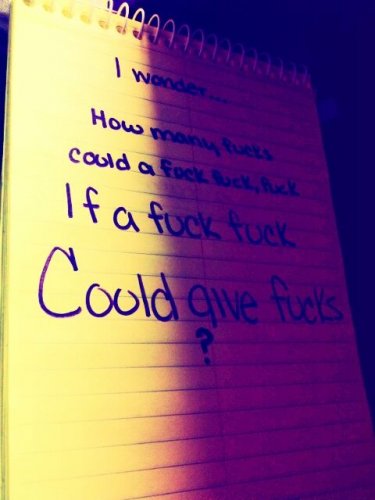 I wonder...
How many fucks
could a fuck fuck, fuck
If a fuck fuck
Could give fucks
?